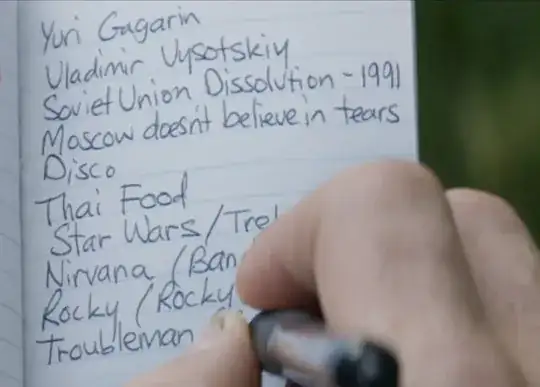 Yuri Gagarin
Vladimir Vysotskiy
Soviet Union Dissolution - 1991
Moscow doesn't believe in tears
Disco
Thai Food
Star Wars / Tre
Nirvana (Ban
Rocky (Rocky
Troubleman